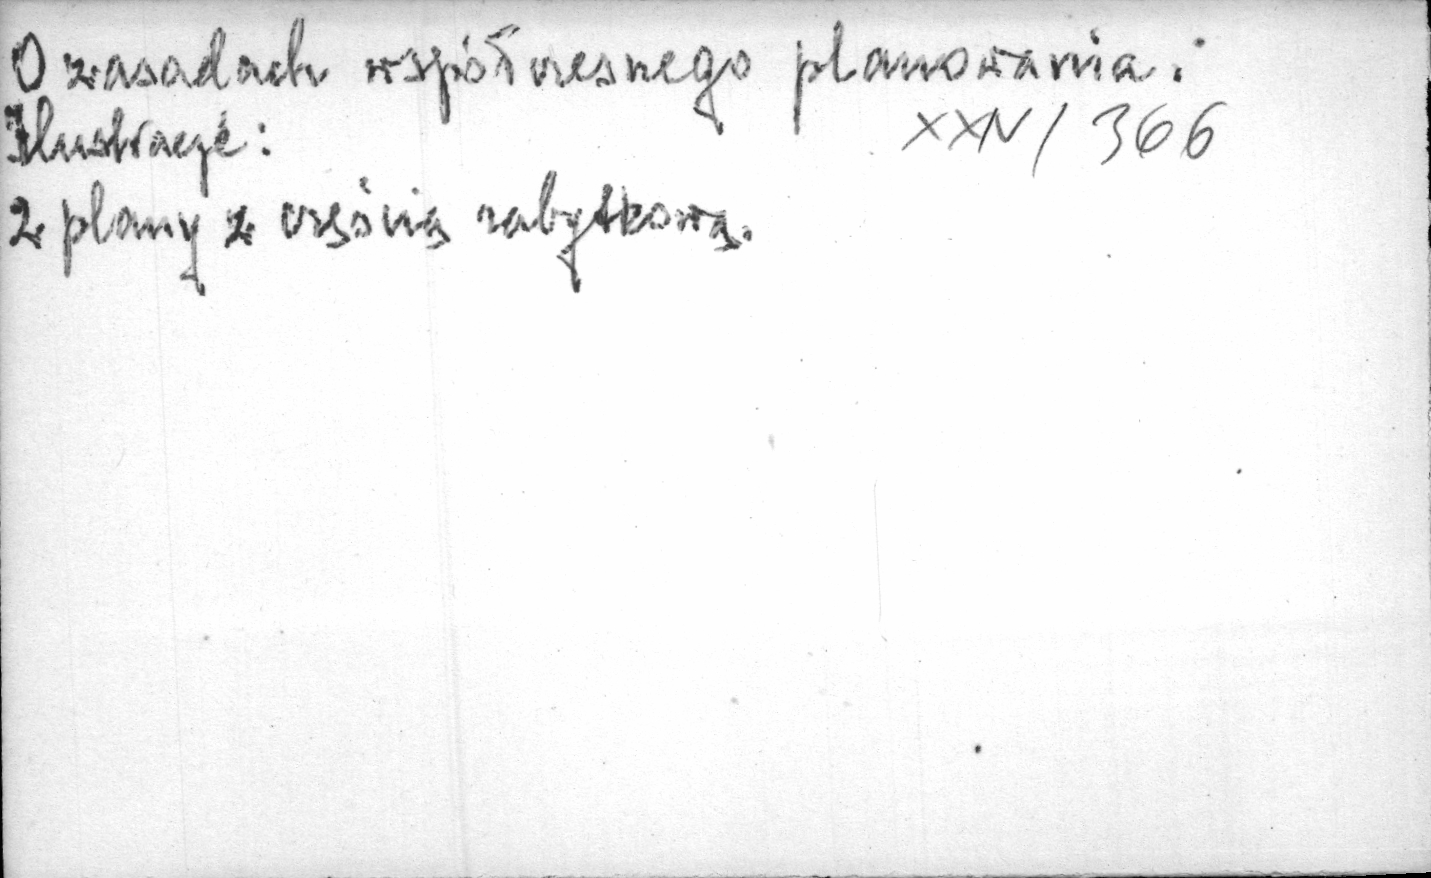 O zasadach współczesnego planowania.
Ilustracje:
XXIV/366
2 plany z częścią zabytkową.